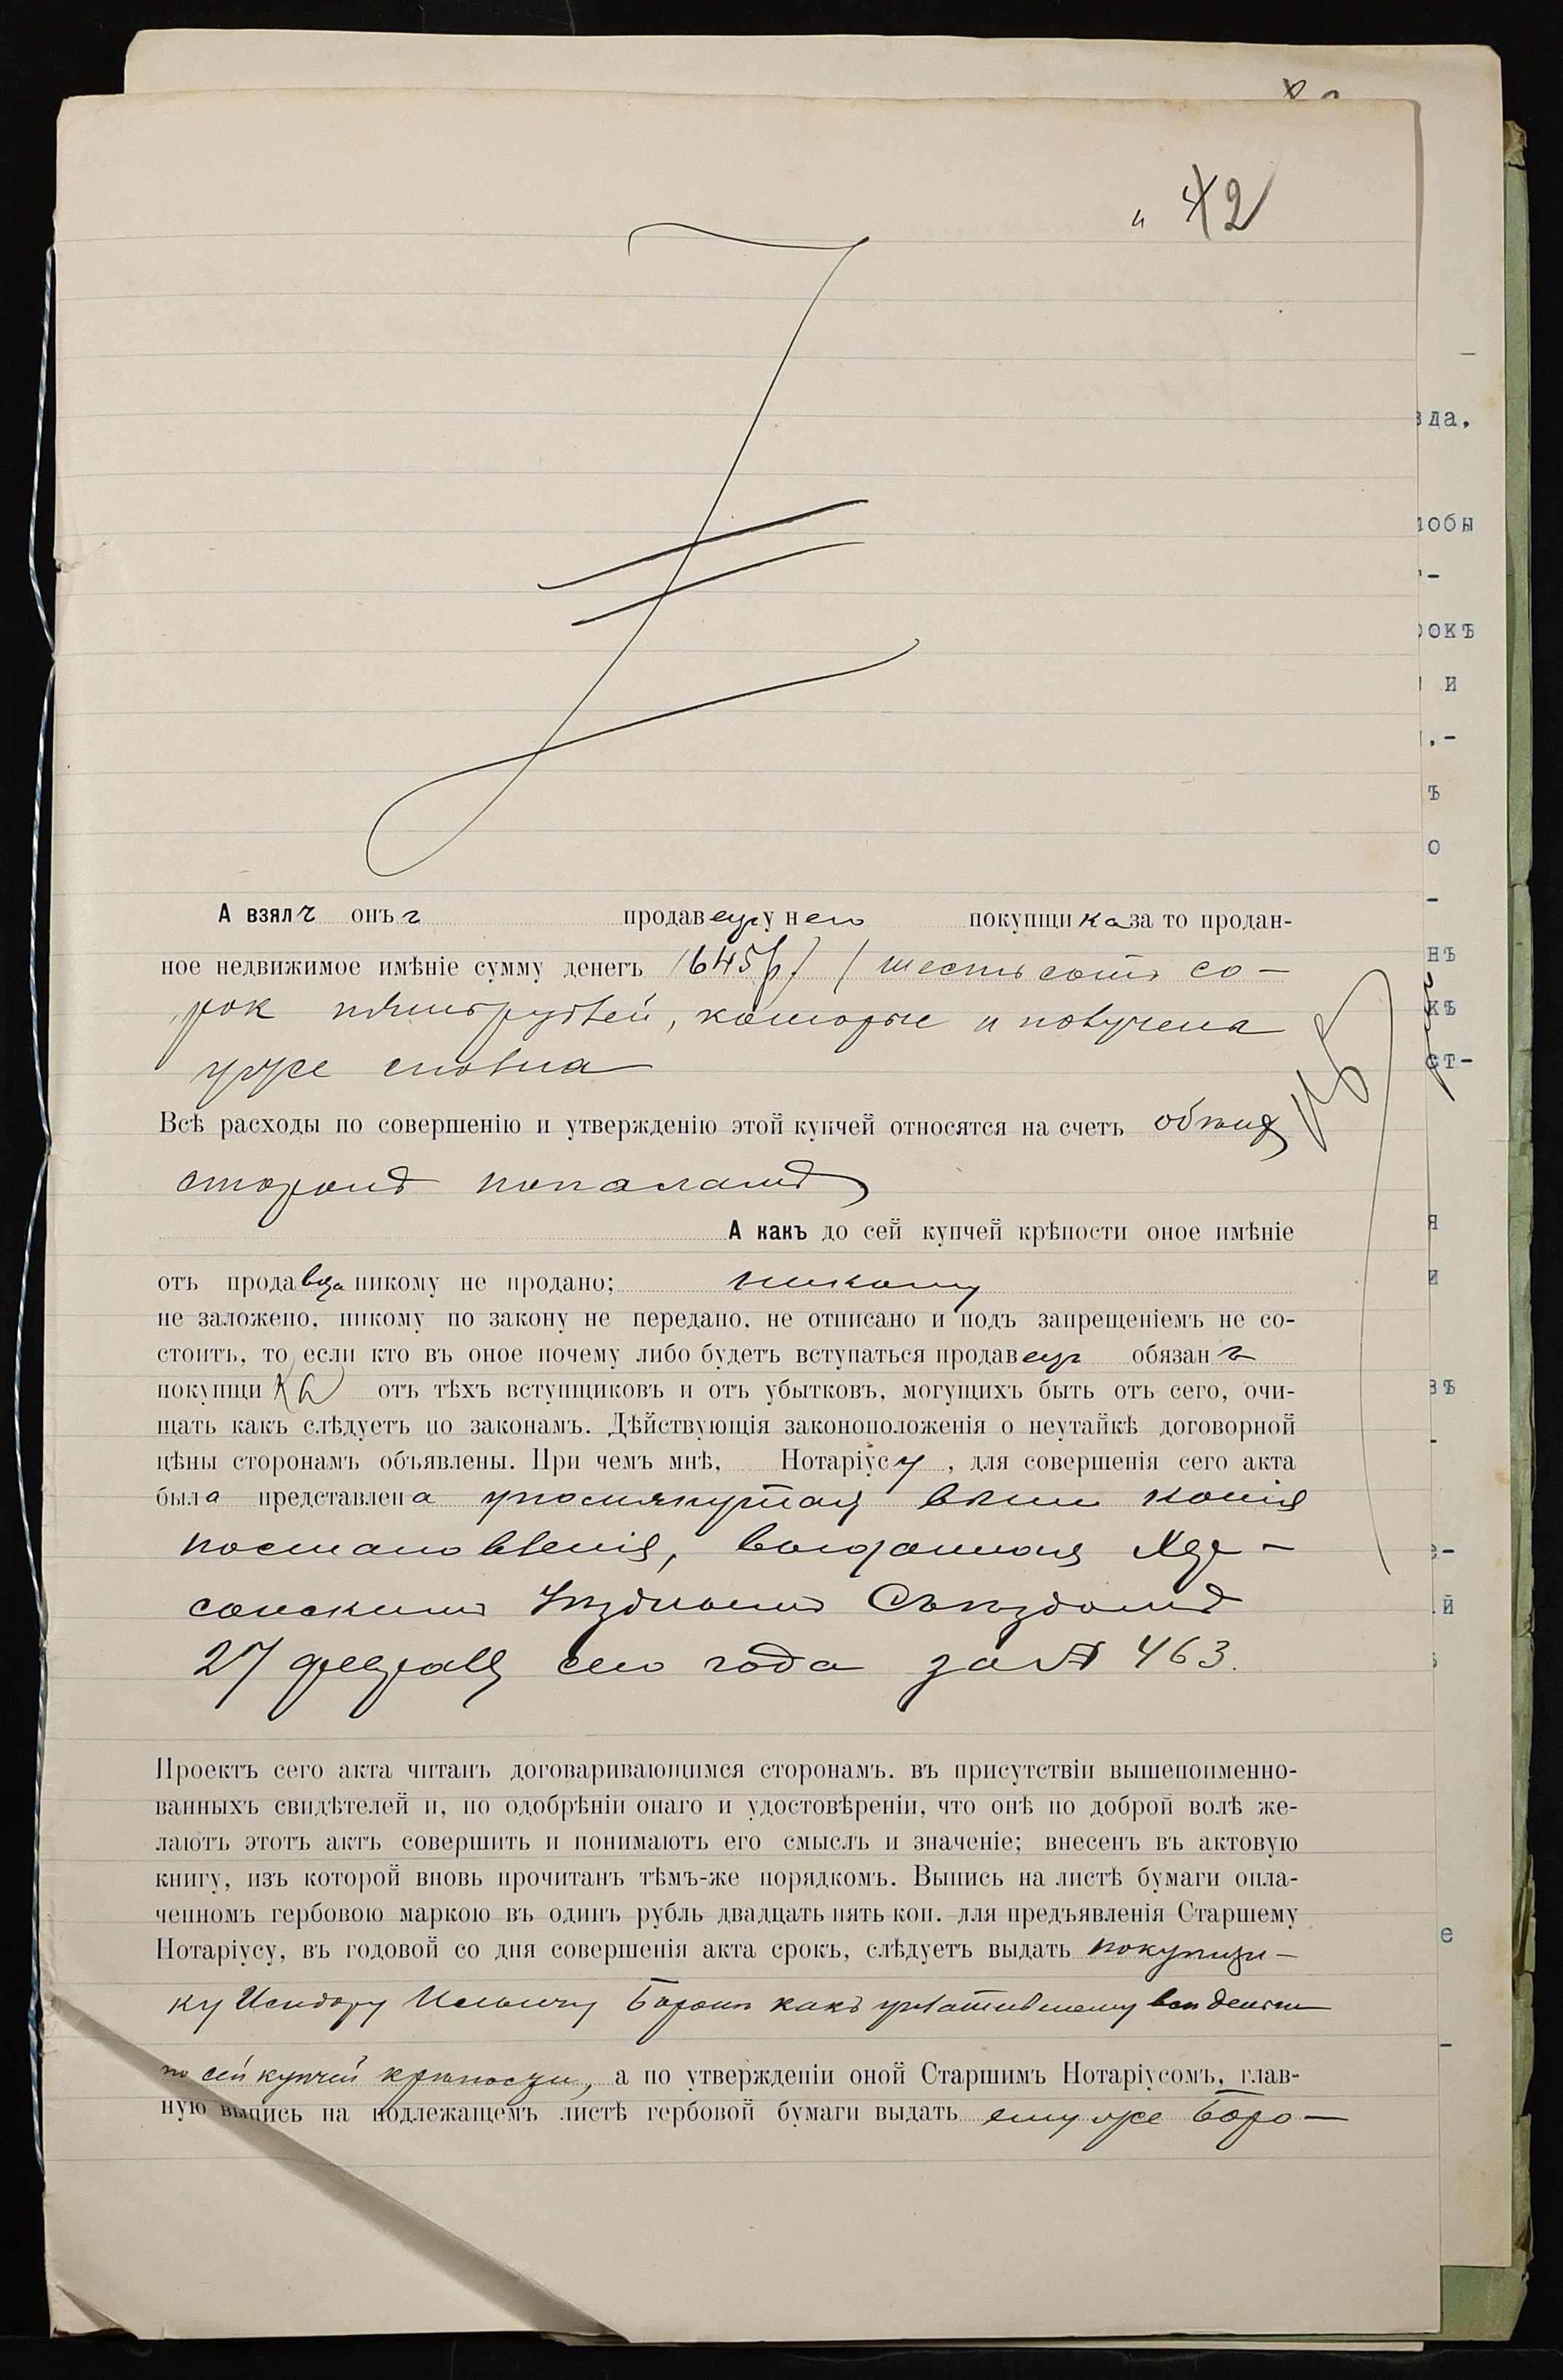 " 42
А взялъ онъ продавецъ у него покупщика за то продан-
ное недвижимое имѣніе сумму денегъ /645 р./ шестьсотъ со-
рокъ пять рублей, которые и получена
уже сполна
Всѣ расходы по совершенію и утвержденію этой купчей относятся на счетъ обѣихъ
сторонъ пополамъ
А какъ до сей купчей крѣпости оное имѣніе
отъ продавца никому не продано; никому
не заложено, никому по закону не передано, не отписано и подъ запрещеніемъ не со-
стоитъ, то если кто въ оное почему либо будетъ вступаться продавецъ обязанъ
покупщика отъ тѣхъ вступщиковъ и отъ убытковъ, могущихъ быть отъ сего, очи-
щать какъ слѣдуетъ по законамъ. Дѣйствующія законоположенія о неутайкѣ договорной
цѣны сторонамъ объявлены. При чемъ мнѣ, Нотаріусу, для совершенія сего акта
была представлена упомянутая выше копія
постановленія, выданная Хер-
сонскимъ Уѣзднымъ Съѣздомъ
27 февраля сего года за № 463.
Проектъ сего акта читанъ договаривающимся сторонамъ. въ присутствіи вышепоименно-
ванныхъ свидѣтелей и, по одобрѣніи онаго и удостовѣреніи, что онѣ по доброй волѣ же-
лаютъ этотъ актъ совершить и понимаютъ его смыслъ и значеніе; внесенъ въ актовую
книгу, изъ которой вновь прочитанъ тѣмъ-же порядкомъ. Выпись на листѣ бумаги опла-
ченномъ гербовою маркою въ одинъ рубль двадцать пять коп. для предъявленія Старшему
Нотаріусу, въ годовой со дня совершенія акта срокъ, слѣдуетъ выдать покупщи-
ку Исидору Ильичу Боронъ какъ уплатившему всѣ деньги
по сей купчей крѣпости, а по утвержденіи оной Старшимъ Нотаріусомъ, глав-
ную выпись на подлежащемъ листѣ гербовой бумаги выдать ему же Боро-